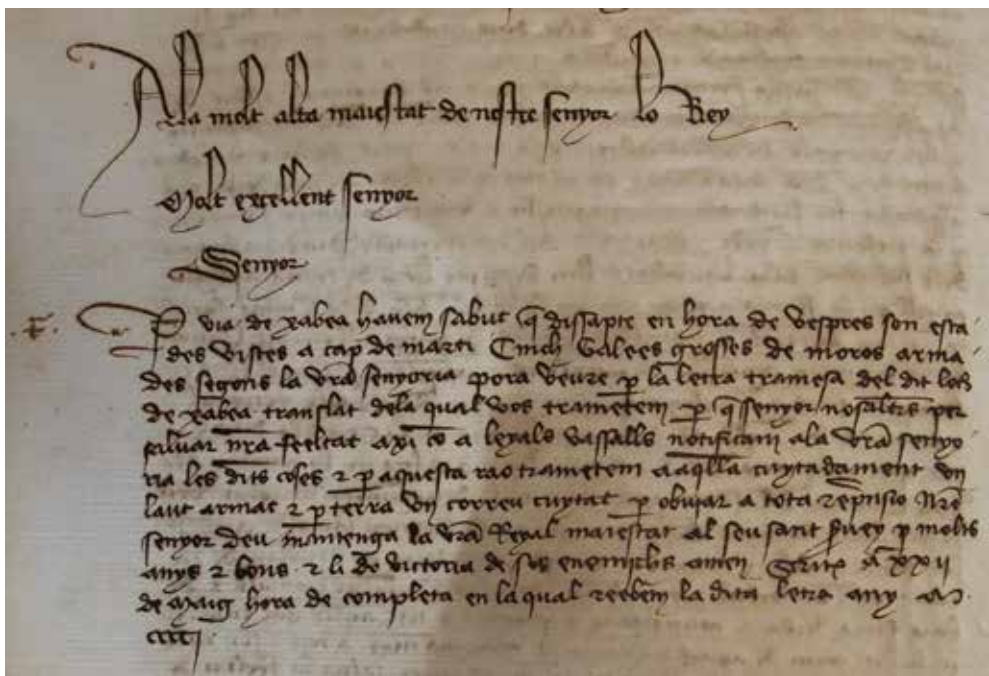 A la molt alta maiestat de nostre senyor lo Rey
Molt excellent senyor
Senyor
P via de xabea havem sabut q̄ dissapte en hora de vespres son esta
des vistes a cap de marti Cinch Galees grosses de moros arma
des segons la vr̄a senyoria pora veure p̄ la letra tramesa del dit loch
de xabea translat dela qual vos trametem p̄ q̄ senyor nosaltr̄s per
saluar nr̄a feeltat axi cō a leyals vassalls notificam ala vr̄a senyo
ria les dits coses ⁊ p̄ aquesta rao trametem a aq̄lla cuytadament vn
laut armat ⁊ p̄ terra vn correu cuytat p̄ obuiar a tota rep̄nsio Nr̄e
senyor deu mantenga la vr̄a Reyal maiestat al seu sant s̄uey p̄ molts
anys ⁊ bons ⁊ li dō victoria de sos enemichs amen Scrita a xxii
de Maig hora de completa en la qual reebem la dita letra any M
cccci